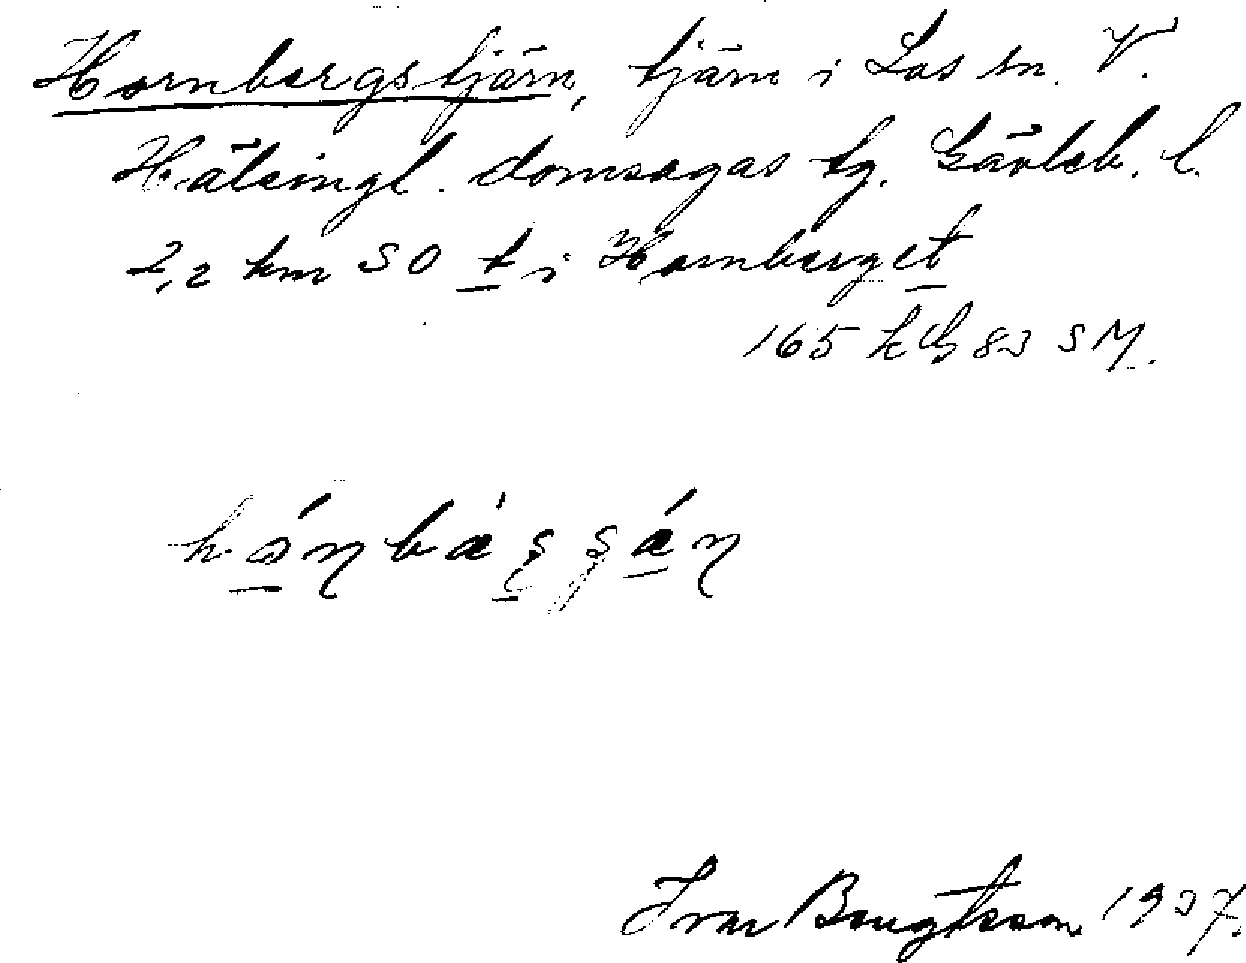 Hornbergstjärn, tjärn i Los sn. V.
Hälsingl. domsagas tg. Gävleb. l.
2,2 km SO t i Hornberget
165 83 SM.
Ivar Bengtsson 1937.